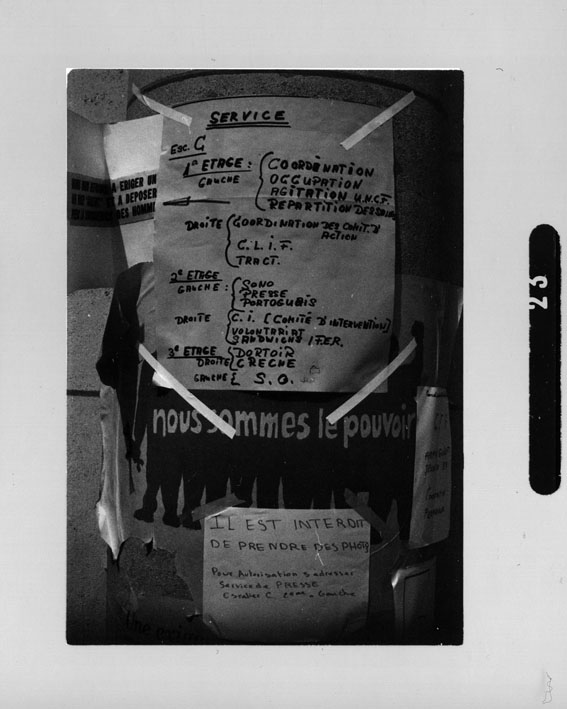 SERVICE
ESC. C
1er ETAGE :
GAUCHE
COORDINATION
OCCUPATION
AGITATION U.N.C.F.
REPARTITION DES
DROITE
COORDINATION DES COMIT. D
ACTION
C.L.I.F.
TRACT.
2e ETAGE
GAUCHE :
SONO
PRESSE
PORTOGUAIS
DROITE
C.I. [COMITÉ D'INTERVENTION]
VOLONTARIAT
SANDWICHS I.F.E.R.
3e ETAGE
DORTOIR
DROITE
CRECHE
GAUCHE
S.O.
A ERIGER UN
ET A DEPOSER
DES HOMM
nous sommes le pouvoir
IL EST INTERDIT
DE PRENDRE DES PHOTO
Pour Autorisation s adresser
Service de PRESSE
Escalier C. Gauche
Une
23